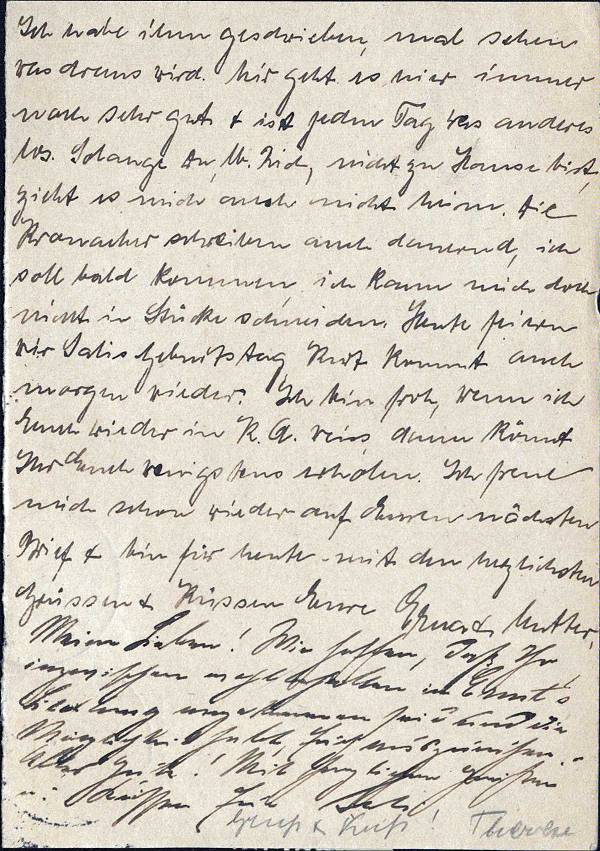 Ich habe ihm geschrieben, mal sehen
was draus wird. Mir geht es hier immer
noch sehr gut & ist jeden Tag was anderes
los. Solange Du, lb. Frid, nicht zu Hause bist,
zieht es mich auch nicht heim. Die
Kronacher schreiben auch dauernd, ich
soll bald kommen, ich kann mich doch
nicht in Stücke schneiden. Heute feiern
wir Salis Geburtstag Kurt kommt auch
morgen wieder. Ich bin froh, wenn ich
Euch wieder in K. A. weiss, dann könnt
Ihr Euch wenigstens erholen. Ich freue
mich schon wieder auf Euren nächsten
Brief & bin für heute mit den herzlichsten
Grüssen & Küssen Eure Mutter,
Meine Lieben! Wir hoffen, daß Ihr
inzwischen wohlbehalten in Ernst's
angekommen seid und die
Möglichkeit habt, Euch auszuruhen.
Alles Gute! Mit herzlichen Grüßen
u. Küssen Euch Sali
Gruß & Kuß! Therese